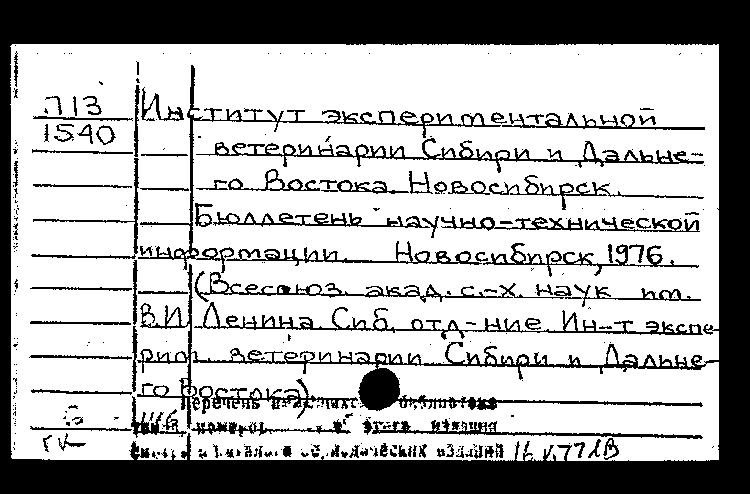 П13
1540
Институт экспериментальной
ветеринарии Сибири и Дальне-
го Востока. Новосибирск.
Бюллетень научно-технической
информации. Новосибирск, 1976.
(Всесоюз. акад. с.-х. наук им.
В.И. Ленина. Сиб. отд-ние. Ин-т экспе-
рим. ветеринарии Сибири и Дальне-
го Востока)
Перечень библиотека
номеров этого издания
изданий 16.V.77